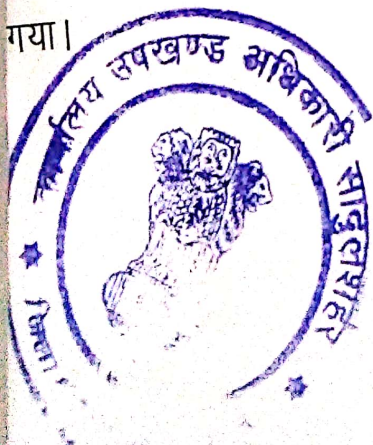 गया।
कार्यालय उपखण्ड अधिकारी सादुलशहर
जिला